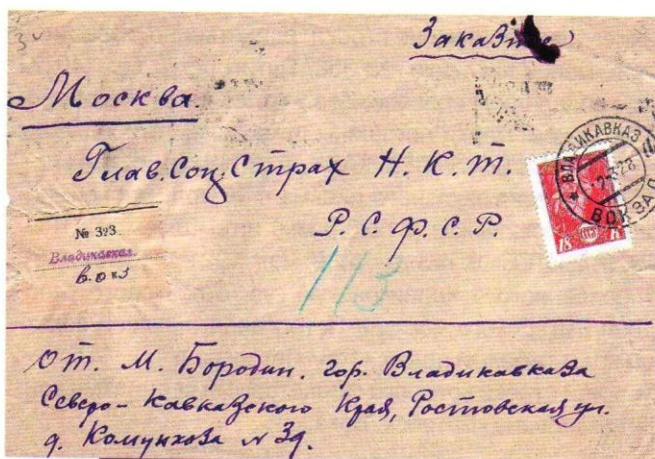 Заказное
Москва
Глав. Соц. Страх Н. К. Т.
Р. С. Ф. С. Р.
ВЛАДИКАВКАЗ
2.3.28
ВОКЗАЛ
18 К
№ 323
Владикавказ.
вокз
113
От. М. Бородин. гор. Владикавказа
Северо-Кавказского Края, Ростовская ул.
д. Комунхоза № 39.